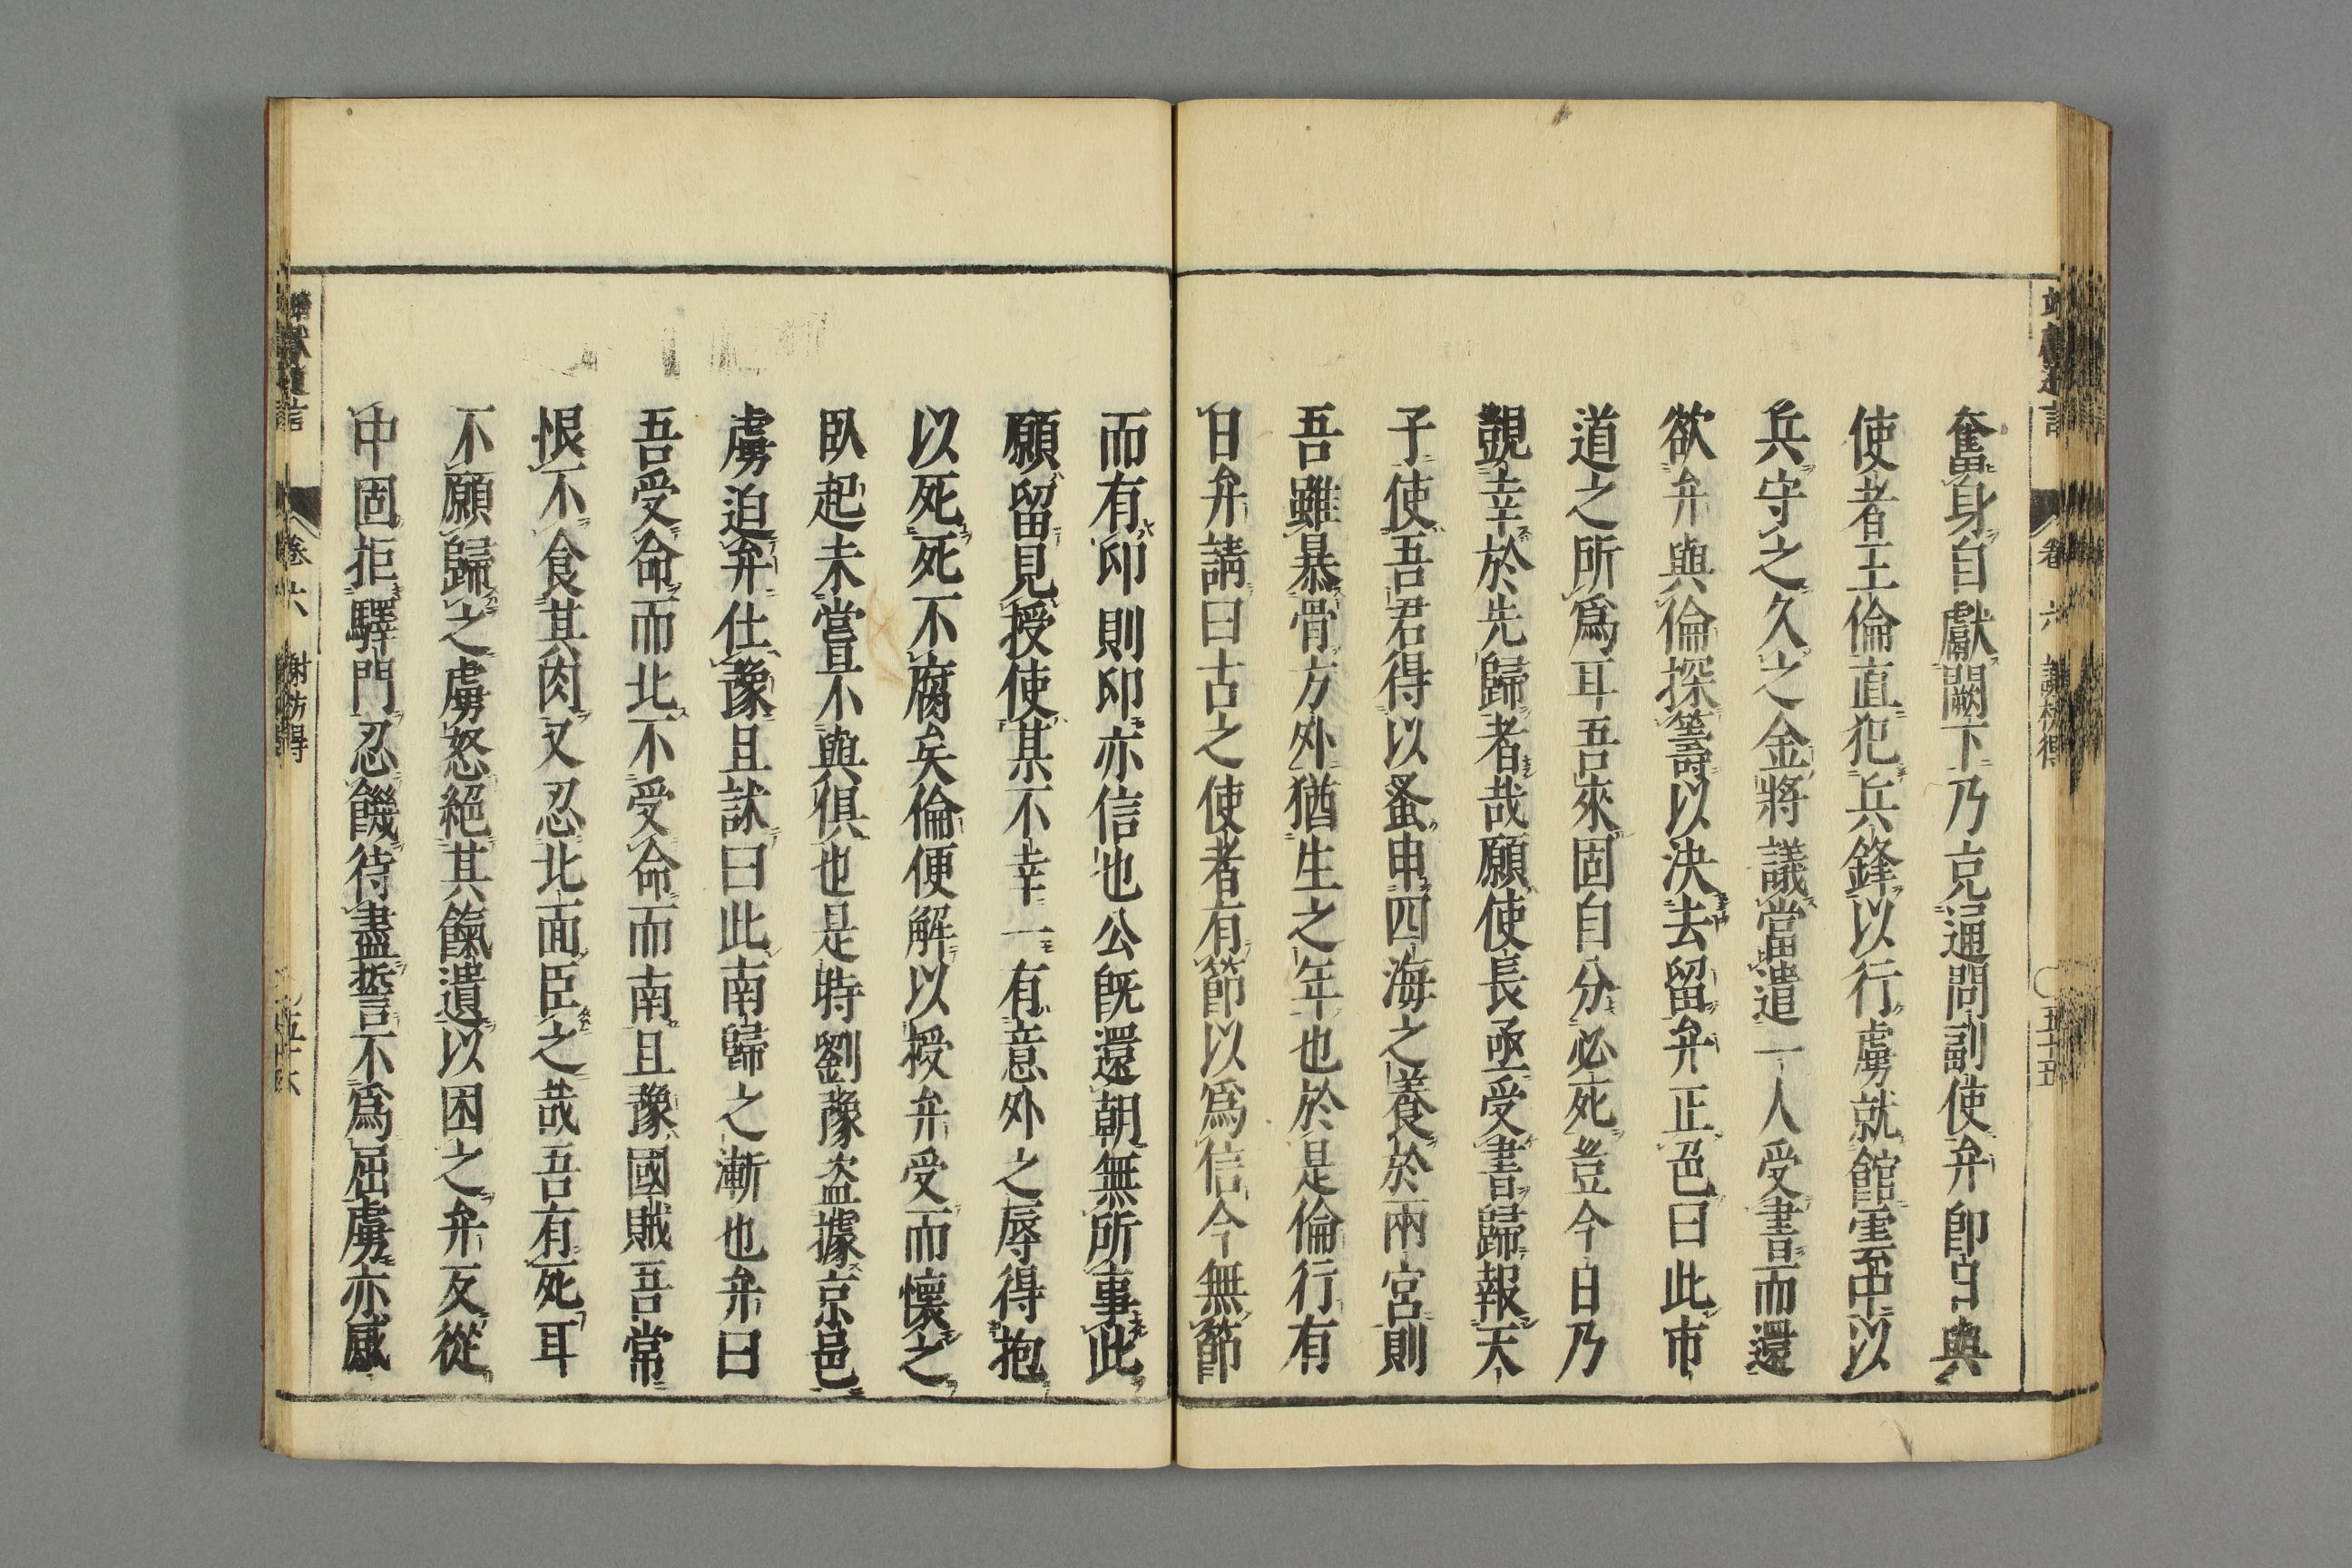 奮身自獻闕下乃克通問副使弁卽日與
使者王倫直犯兵鋒以行虜就館雲中以
兵守之久之金將議當遣一人受書而還
欲弁與倫探籌以決去留弁正色曰此市
道之所爲耳吾來固自分必死豈今日乃
覬幸於先歸者哉願使長亟受書歸報天
子使吾君得以蚤申四海之養於兩宮則
吾雖暴骨方外猶生之年也於是倫行有
日弁請曰古之使者有節以爲信今無節
而有印則印亦信也公旣還朝無所事此
願留見授使某不幸一有意外之辱得抱
以死死不腐矣倫便解以授弁受而懷之
臥起未嘗不與俱也是時劉豫盜據京邑
虜迫弁仕豫且訹曰此南歸之漸也弁曰
吾受命而北不受命而南且豫國賊吾常
恨不食其肉又忍北面臣之哉吾有死耳
不願歸之虜怒絕其餼遺以困之弁反從
中固拒驛門忍饑待盡誓不爲屈虜亦感
卷六 謝枋得
五十五
獻遺言 卷六 謝枋得
五十六